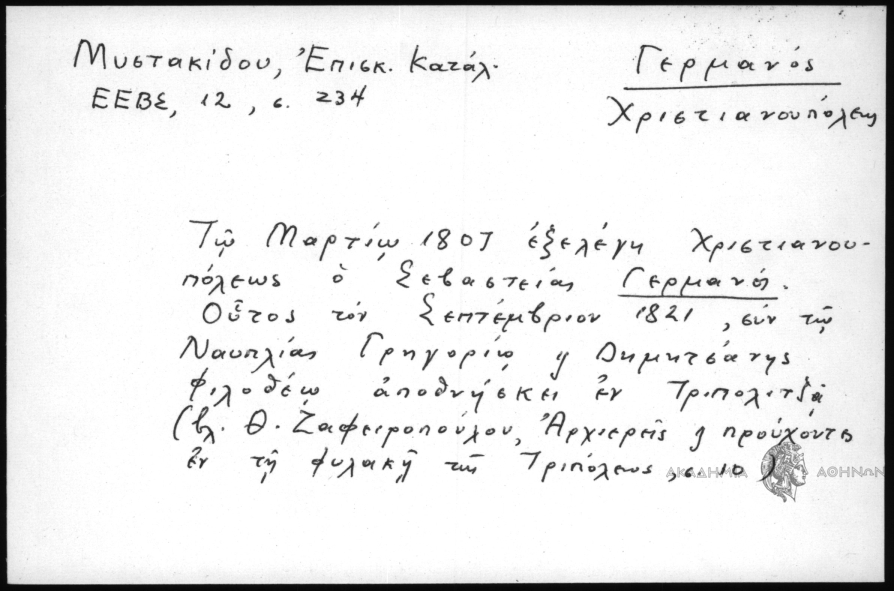 Μυστακίδου, Ἐπισκ. Κατάλ.
ΕΕΒΣ, 12, σ. 234
Γερμανός
Χριστιανουπόλεως
Τῷ Μαρτίῳ 1807 ἐξελέγη Χριστιανου-
πόλεως ὁ Σεβαστείας Γερμανός.
Οὗτος τόν Σεπτέμβριον 1821, σύν τῷ
Ναυπλίας Γρηγορίῳ ϗ Δημητσάνης
Φιλοθέῳ ἀποθνῄσκει ἐν Τριπολιτσᾷ
(βλ. Θ. Ζαφειροπούλου, Ἀρχιερεῖς ϗ προύχοντες
ἐν τῇ φυλακῇ τῆς Τριπόλεως, σ. 10)
ΑΚΑΔΗΜΙΑ ΑΘΗΝΩΝ